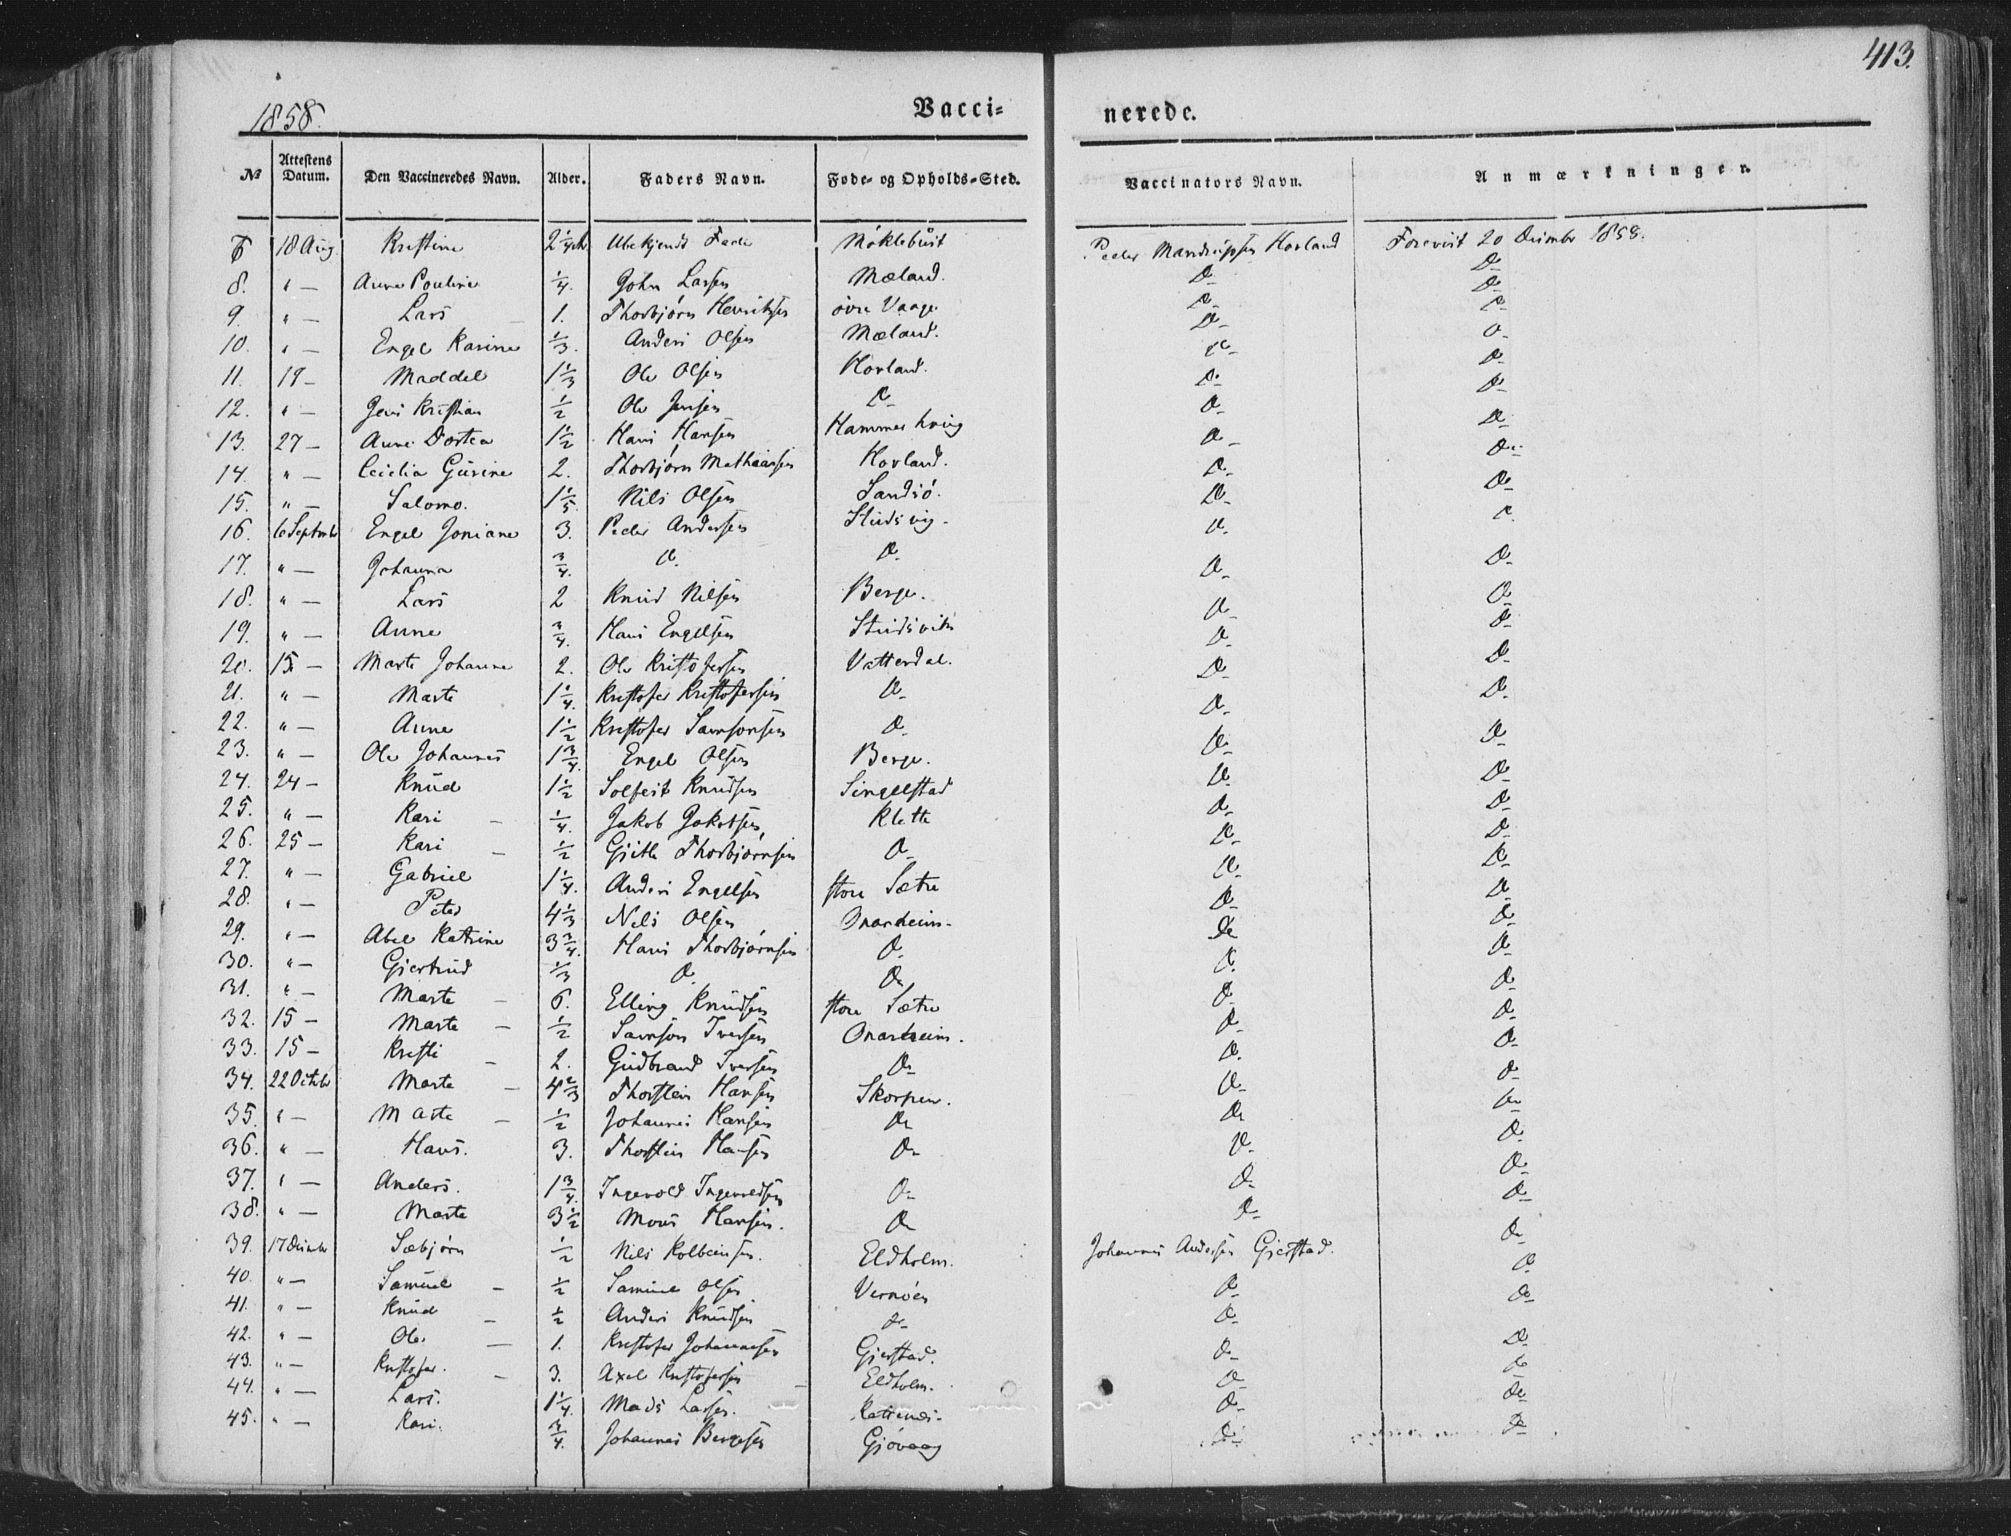 413.
1858.
Vacci= nerede.
№ Attestens Datum. Den Vaccineredes Navn. Alder. Faders Navn. Føde- og Opholds-Sted. Vaccinators Navn. Anmærkninger.
18 Aug Kristine 2 1/4 Ubekjendt Fader Møklebust Peder Mandrupsen Hovland Forevist 20 Decmbr 1858.
8. " — Anne Pouline 1/4. John Larsen Mæland. Do Do
9. " — Lars 1. Thorbjørn Henriksen øvre Vaage Do Do
10. " — Engel Karine 1/3. Anders Olsen Mæland. Do Do
11. 19 — Maddel 1 1/3 Ole Olsen Hovland. Do Do
12. " — Jens Kristian 1/2 Ole Jensen Do Do Do
13. 27 — Anne Dortea 1 1/2 Hans Hansen Hammerhoug Do Do
14. " — Cecilia Gurine 2. Thorbjørn Mathiasen Hovland. Do Do
15. " — Salomo. 1 1/5 Nils Olsen Sandsø. Do Do
16. 6 Septmbr Engel Joniane 3. Peder Andersen Studsvig. Do Do
17. " — Johanna 3/4. Do Do Do Do
18. " — Lars 2 Knud Nilsen Berge. Do Do
19. " — Anne 3/4. Hans Engelsen Studsvik Do Do
20. 15 — Marte Johanne 2. Ole Kristofersen Vatterdal. Do Do
21. " — Marte 1 1/4. Kristofer Kristofersen Do Do Do
22. " — Anne 1 1/2 Kristofer Samsonsen Do Do Do
23. " — Ole Johannes 1 3/4. Engel Olsen Berge. Do Do
24. 24 — Knud 1 1/2 Solfest Knudsen Singelstad Do Do
25. " — Kari 1/4. Jakob Jakobsen Klette Do Do
26. 25 — Kari 1/2 Gjitle Thorbjørnsen Do Do Do
27. " — Gabriel 1 1/4. Anders Engelsen store Sætre Do Do
28. " — Peter 4 1/3 Nils Olsen Onarheim. Do Do
29. " — Abel Katrine 3 3/4. Hans Thorbjørnsen Do Do Do
30. " — Gjertrud 1/3 Do Do Do Do
31. " — Marte 6. Elling Knudsen store Sætre Do Do
32. 15 — Marte 1/2 Samson Iversen Onarheim. Do Do
33. 15 — Kristi 2. Gudbrand Iversen Do Do Do
34. 22 Octbr Marte 4 2/3 Thorstein Hansen Skorpen. Do Do
35. " — Marte 1/2 Johannes Hansen Do Do Do
36. " — Hans. 3. Thorstein Hansen Do Do Do
37. " — Anders. 1 3/4. Ingevold Ingevoldsen Do Do Do
38. " — Marte 3 1/2 Mons Hansen. Do Do Do
39. 17 Decmbr Sæbjørn 1/2 Nils Kolbeinsen. Eldholm. Johannes Andersen Gjerstad. Do
40. " — Samuel 1/2 Samuel Olsen Vernøen Do Do
41. " — Knud 1/2 Anders Knudsen do Do Do
42. " — Ole. 1. Kristofer Johannesen Gjerstad. Do Do
43. " — Kristofer. 3. Axel Kristofersen Eldholm. Do do
44. " — Lars. 1 1/4. Mads Larsen. Do do
45. " — Kari. 3/4. Johannes Bergesen Gjøvaag Do Do